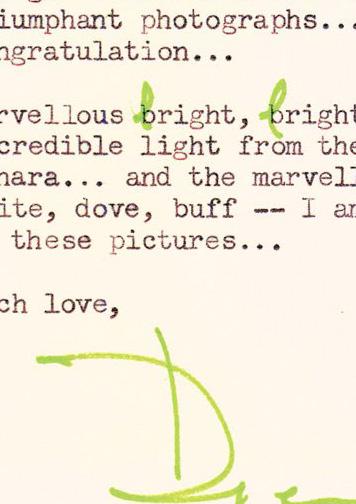 iumphant photographs...
ngratulation...
rvellous bright, bright
credible light from the
hara... and the marvell
ite, dove, buff -- I am
these pictures...
ch love,
D